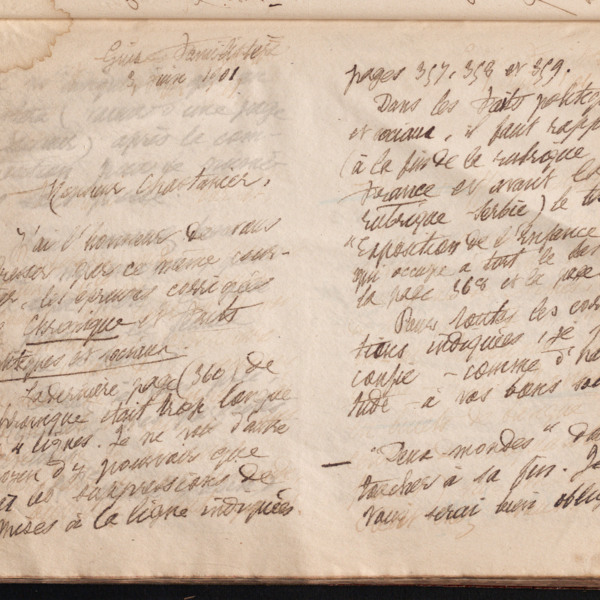 Guise Familistère
3 juin 1901
Monsieur Chastanier,
J'ai l'honneur de vous
par ce même cour-
les épreuves corrigées
Chronique et Faits
politiques et sociaux.
La dernière page (360) de
chronique était trop longue
4 lignes. Je ne vois d'autre
moyen d'y pourvoir que
suppressions de
mises à la ligne indiquées
pages 357, 358 et 359.
Dans les Faits politiq
et sociaux, il faut rapp
(à la fin de la rubrique
France et avant le
rubrique Serbie) le
"Exposition de l'Enfance
qui occupe a tout le bas
la page 368 et la page
Pour toutes les corr
tions indiquées, je
confie - comme d'ha
tude - à vos bons soi
— "Deux mondes" da
toucher à sa fin. Je
vous serai bien oblig